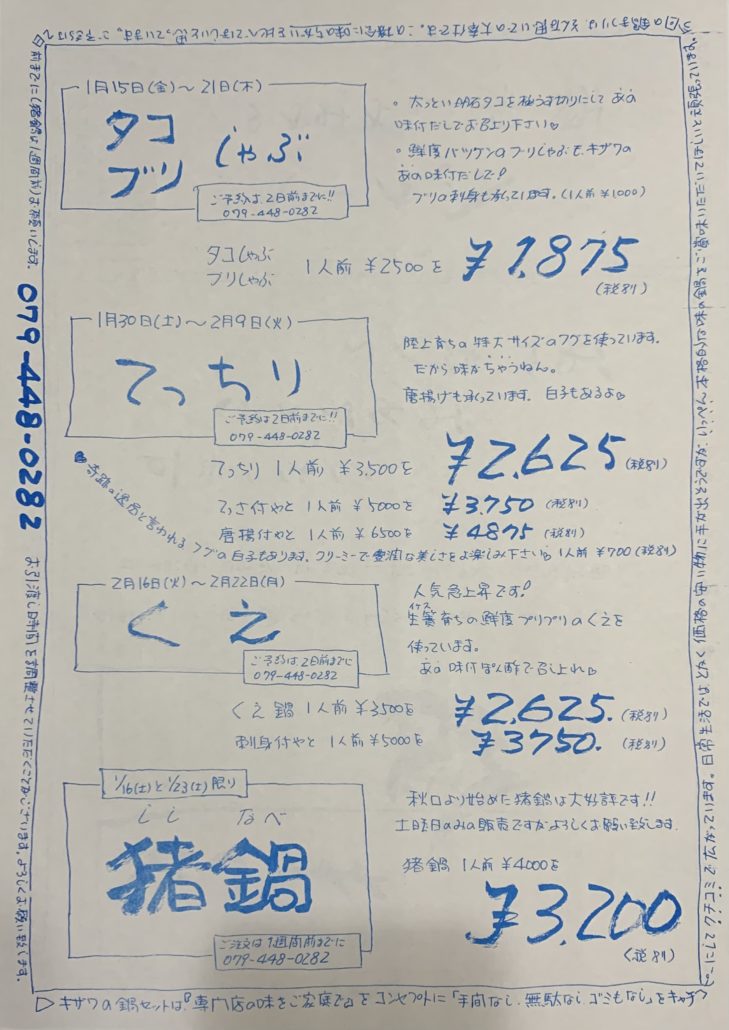 1月15日(金)～21日(木)
タコ
ブリ しゃぶ
ご予約は、2日前までに!!
079-448-0282
・太っとい明石タコを極うす切りにして あの
味付だしでお召上り下さい♡
・鮮度バツグンのブリしゃぶも、キザワの
あの味付だしで!
ブリの刺身も承っています。(1人前¥1000)
タコしゃぶ
ブリしゃぶ 1人前 ¥2500を ¥1,875
(税別)
1月30日(土)～2月9日(火)
てっちり
ご予約は2日前までに!!
079-448-0282
陸上育ちの特大サイズのフグを使っています。
だから味がちゃうねん。
唐揚げも承っています。白子もあるよ♡
てっちり 1人前 ¥3,500を ¥2,625(税別)
てっさ付やと 1人前 ¥5000を ¥3,750(税別)
唐揚付やと 1人前 ¥6500を ¥4875(税別)
フグの白子もあります。クリーミーで濃厚な美しさをお楽しみ下さい♡ 1人前 ¥700(税別)
2月16日(火)～2月22日(月)
くえ
ご予約は2日前までに
079-448-0282
人気急上昇です!
イケス
生簀育ちの鮮度プリプリのくえを
使っています。
あの味付ぽん酢で召し上れ♡
くえ鍋 1人前 ¥3500を ¥2,625.(税別)
刺身付やと 1人前 ¥5000を ¥3750.(税別)
1/16(土)と1/23(土)限り
しし なべ
猪鍋
ご注文は1週間前までに
079-448-0282
秋口より始めた猪鍋は大好評です!!
土曜日のみの販売ですがよろしくお願い致します。
猪鍋 1人前 ¥4000を
¥3,200
(税別)
▷キザワの鍋セットは『専門店の味をご家庭で』をコンセプトに「手間なし、無駄なし ゴミもなし」をキャッ
チにクチコミで広がっています。日常生活ではとかく価格の安い物に手が出そうですが
前までに(猪鍋は1週間前)お願いします。079-448-0282 お引渡し日時間を調整させていただくことがございます。よろしくお願い致します。